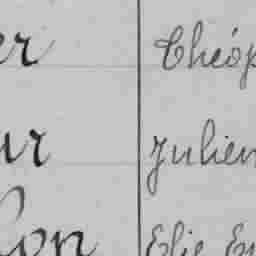 er Théop
ur Julien
lon Elie Em